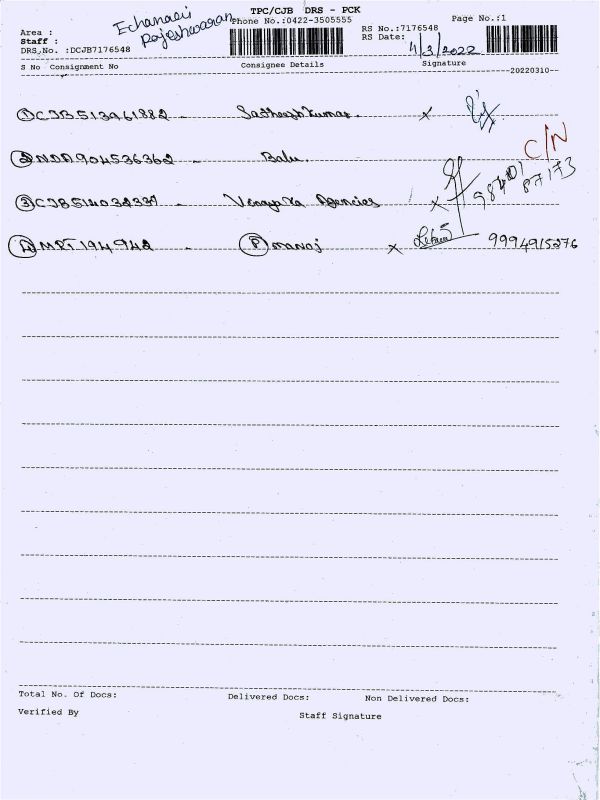 TPC/CJB DRS - PCK
Echanari
Rajeshwaran
Area :
Staff :
DRS No. :DCJB7176548
Phone No.:0422-3505555
RS No.:7176548
RS Date: 4/3/2022
Page No.:1
S No Consignment No Consignee Details Signature
20220310
1 CJB513961882 - Sathish Kumar. x
C/N
2 NDA904536362 - Balu. 98401 87173
3 CJB514032337 - Vinayaka Agencies x
4 MRT194942 - P manoj x 9994915276
Total No. Of Docs: Delivered Docs: Non Delivered Docs:
Verified By Staff Signature